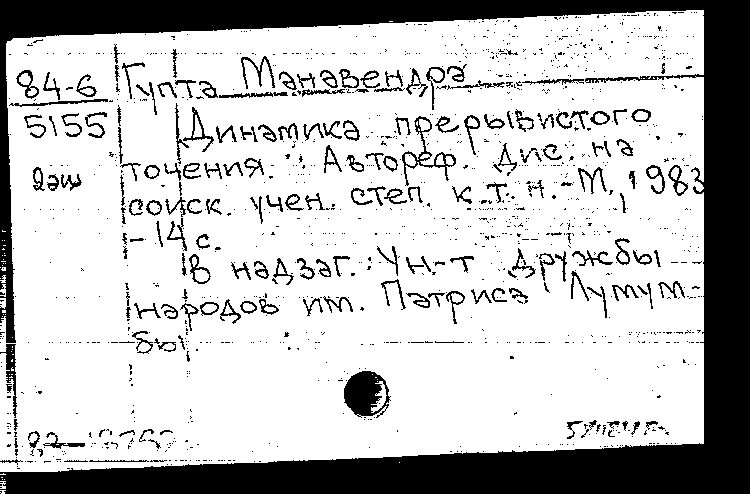 84-6 Гупта Манавендра.
5155 Динамика прерывистого
точения. : Автореф. дис. на
соиск. учен. степ. к.т.н.-М., 1983
-14 с.
В надзаг.: Ун-т дружбы
народов им. Патриса Лумум-
бы.